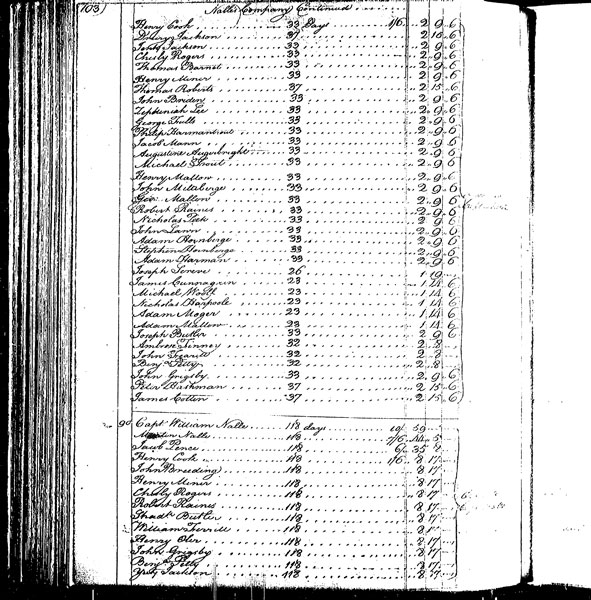 703)
Nalle's Company Continued
Henry Cook 33 Days 1/6 2 9 6
Drury Jackson 37 2 10 6
John Jackson 33 2 9 6
Chesly Rogers 33 2 9 6
Thomas Barnet 33 2 9 6
Henry Miner 33 2 9 6
Thomas Roberts 37 2 15 6
John Breden 33 2 9 6
Zepheniah Lee 33 2 9 6
George Fulls 33 2 9 6
Philip Harmantrout 33 2 9 6
Jacob Mann 33 2 9 6
Augustine Augerbright 33 2 9 6
Michael Trout 33 2 9 6
Henry Mallow 33 2 9 6
John Mildeberge 33 2 9 6
Geo: Mallow 33 2 9 6
Robert Raines 33 2 9 6
Nicholas 33 2 9 6
John Lawn 33 2 9 6
Adam Hornberge 33 2 9 6
Stephen Hornberge 33 2 9 6
Adam Harman 33 2 9 6
Joseph 26 1 19
James Cunnagain 23 1 14 6
Michael Woolf 23 1 14 6
Nicholas Harpoole 23 1 14 6
Adam Moger 23 1 14 6
Adam Mallow 23 1 14 6
Joseph Butler 33 2 9 6
Ambrose Finney 32 2 8
John 32 2 8
Benja Petty 32 2 8
John Grigsby 33 2 9 6
Peter Bushman 37 2 15 6
James Cotten 37 2 15 6
90 Capt William Nalle 118 days 10/ 59
Martin Nalle 118 7/6 44 5
Jacob Pence 118 6/ 35 8
Henry Cook 118 1/6 8 17
John Breeding 118 8 17
Henry Miner 118 8 17
Chesly Rogers 118 8 17
Robert Raines 118 8 17
Shadk Butler 118 8 17
William Ferrill 118 8 17
Henry Oler 118 8 17
John Grigsby 118 8 17
Benja Petty 118 8 17
Jackson 118 8 17